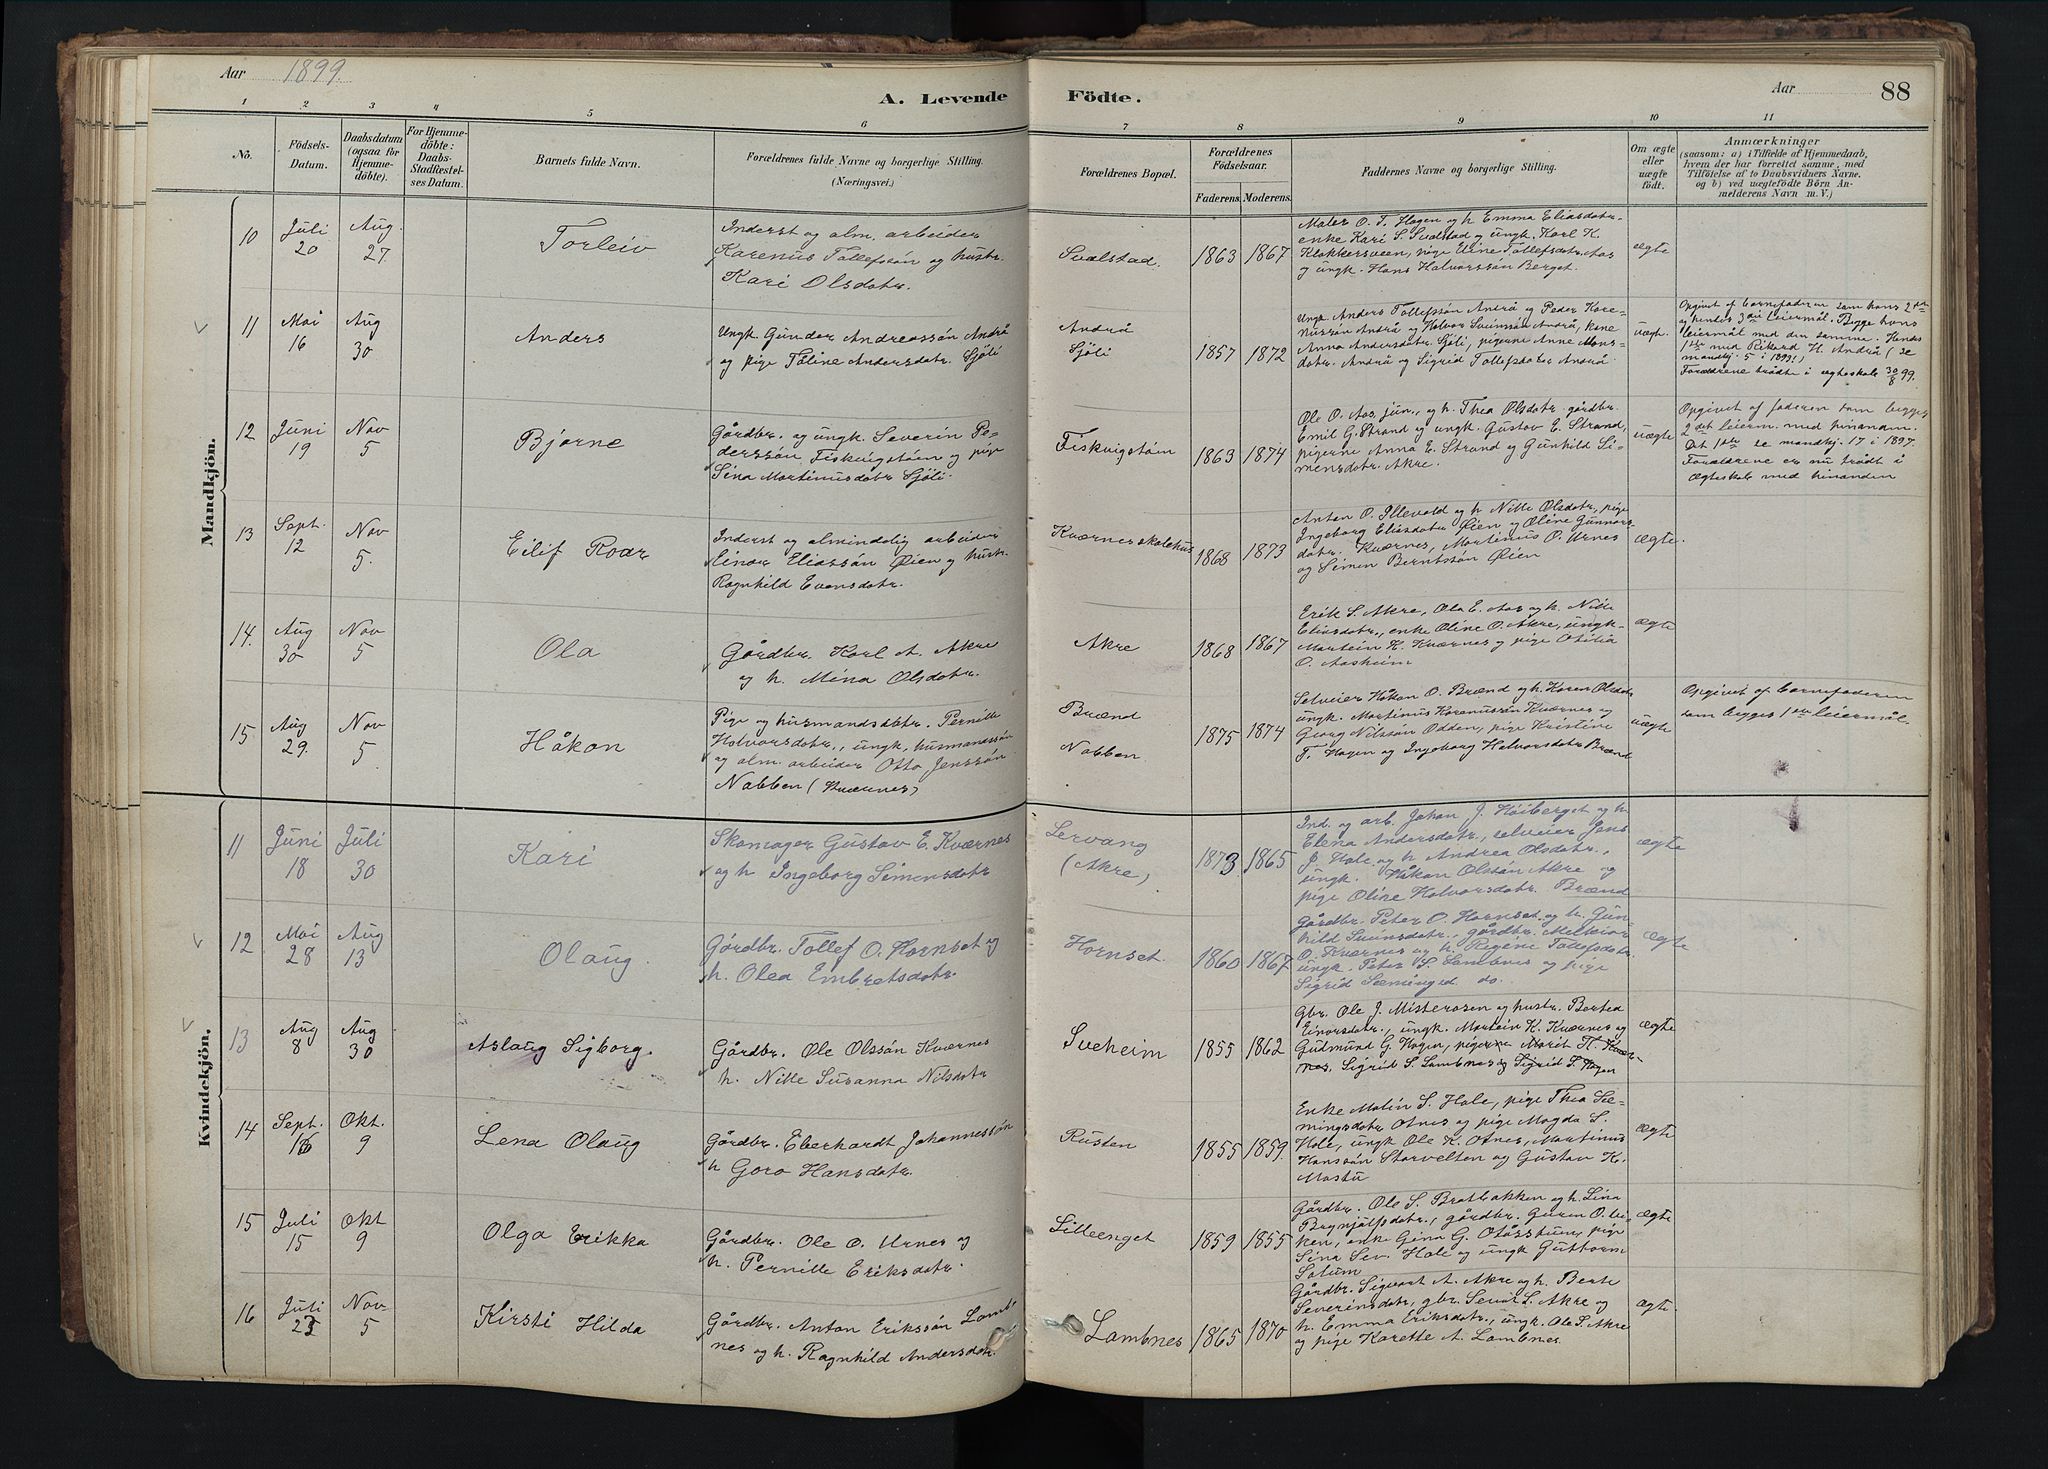 Aar 1899.
A. Levende Födte.
Aar
88
1 2 3 4 5 6 7 8 9 10 11
No.
Födsels-
Datum.
Daabsdatum
(ogsaa for
Hjemme-
döbte).
For Hjemme-
döbte:
Daabs-
Stadfæstel-
ses Datum.
Barnets fulde Navn.
Forældrenes fulde Navne og borgerlige Stilling.
(Næringsvei.)
Forældrenes Bopæl.
Forældrenes
Födselsaar.
Faderens. Moderens.
Faddernes Navne og borgerlige Stilling.
Om ægte
eller
uægte
födt.
Anmærkninger
(saasom: a) i Tilfælde af Hjemmedaab,
hvem der har forrettet samme, med
Tilföielse af to Daabsvidners Navne.
og b) ved uægtefödte Börn An-
melderens Navn m. V.)
Mandkjön.
10
Juli
20
Aug.
27
Torleiv
Inderst og alm. arbeider
Karenus Tollefsön og hustr.
Kari Olsdatr.
Svalstad.
1863 1867
Maler O. T. Hagen og h. Emma Eliasdatr.
enke Kari S. Svalstad og ungk. Karl K.
Klokkersveen, pige Oline Tollefsdatr. Aas
og ungk. Hans Halvorssön Berget.
ægte
11
Mai
16
Aug
30
Anders
Ungk. Gunder Andreassön Andrå
og pige Taline Andersdatr. Sjöli
Andrå
Sjöli
1857 1872
Ungk. Anders Tollefsön Andrå og Peder Kare-
nussön Andrå og Halvor Svensön Andrå, kone
Anna Andersdatr. Sjöli, pigerne Anne Mons-
datr. Andrå og Sigrid Tollefsdatr Andrå.
uægt.
Opgivet af barnefaderen som hans 2det
og hendes 3die leiermål. Begge hans
leiermål med den samme. Hendes
1ste med Rikard H. Andrå (se
mandkj. 5 i 1893!)
Forældrene trådte i ægteskab 30/8 99.
12
Juni
19
Nov
5
Bjarne
Gårdbr. og ungk. Severin Pe-
derssön Fiskvigstöm og pige
Sina Martinusdatr Sjöli.
Fiskvigstöm
1863 1874
Ole O. Aas jun., og h. Thea Olsdatr. gårdbr.
Emil G. Strand og ungk. Gustav E. Strand,
pigerne Anna E. Strand og Gunhild Si-
mensdatr. Akre.
uægte
Opgivet af faderen som begges
2det leierm. med hinanden.
Det 1ste se mandkj. 17 i 1897.
Forældrene er nu trådt i
ægteskab med hinanden
13
Sept.
12
Nov
5.
Eilif Roar
Inderst og almindelig arbeider
Einar Eliassön Öien og hustr.
Ragnhild Evensdatr.
Kværnes skolehus
1868 1873
Anton O. Illevold og h Nille Olsdatr., pige
Ingeborg Eliasdatr Öien og Oline Gunnars-
datr. Kværnes, Martinus O. Urnes
og Simen Berntssön Öien
ægte.
14.
Aug
30
Nov
5
Ola
Gårdbr. Karl A. Akre
og h. Mina Olsdatr.
Akre
1868 1867
Erik S. Akre, Ola E. Aas og h. Nille
Eliasdatr., enke Oline O. Akre, ungk.
Martein K. Kværnes og pige Otilia
O. Aasheim
ægte
15
Aug
29.
Nov
5
Håkon
Pige og husmandsdatr. Pernille
Halvorsdatr., ungk. husmandssön
og alm. arbeider Otto Jenssön
Nabben (Kværnes)
Brænd
Nabben
1875 1874
Selveier Håkon O. Brænd og h. Karen Olsdatr.
ungk. Martinus Karenussön Kværnes og
Georg Nilssön Odden, pige Kristine
T. Hagen og Ingeborg Halvorsdatr Brænd
uægte
Opgivet af barnefaderen
som begges 1ste leiermål.
Kvindekjön.
11
Juni
18
Juli
30
Kari
Skomager Gustav E. Kværnes
og h Ingeborg Simensdatr
Lervang
(Akre)
1873 1865
Ind. og arb. Johan J. Höiberget og h.
Elena Andersdatr., selveier Jens
J. Hole og h Andrea Olsdatr.,
ungk. Håkon Olssön Akre og
pige Oline Halvorsdatr. Brænd
ægte
12
Mai
28
Aug
13
Olaug.
Gårdbr. Tollef O. Hornset og
h. Olea Embretsdatr.
Hornset.
1860 1867
Gårdbr. Peter O. Hornset og h. Gun-
hild Svensdatr., gårdbr. Melleior
O. Kværnes og h. Regine Tollefsdatr.
ungk. Peter S. Lambnes og pige
Sigrid Seminged do.
ægte
13
Aug
8
Aug
30
Aslaug Sigborg.
Gårdbr. Ole Olssön Kværnes
h. Nille Susanna Nilsdatr
Sveheim
1855 1862
Gbr. Ole J. Misterosen og hustr. Bertea
Einarsdatr., ungk. Martein K. Kværnes og
Gudmund G. Hagen, pigerne Marit H. Kvær-
nes, Sigrid S. Lambnes og Sigrid S. Hagen
ægte
14
Sept.
16
Okt.
9
Lena Olaug
Gårdbr. Eberhardt Johannessön
h Goro Hansdatr.
Rusten
1855 1859.
Enke Malin S. Hole, pige Thea See-
mingsdatr Otnes og pige Magda S.
Hole, ungk Ole K. Otnes, Martinus
Hanssön Storvelten og Gustav K.
Mastu
ægte
15
Juli
15
Okt
9
Olga Erikka
Gårdbr. Ole O. Urnes og
h. Pernille Eriksdatr.
Lilleenget
1859 1855
Gårdbr. Ole S. Bratbakken og h. Lina
Brynjulfsdatr., gårdbr. Guren O. Ei-
ken, enke Gina G. Otåsstuen, pige
Sina Sev. Hole og ungk Guttorm
Satum
ægte
16
Juli
25
Nov
5
Kirsti Hilda
Gårdbr. Anton Erikssön Lamb-
nes og h. Ragnhild Andersdatr.
Lambnes
1865 1870
Gårdbr. Sigvart A. Akre og h. Berte
Severinsdatr, gbr. Senius S. Akre og
h. Emma Eriksdatr., ungk. Ole S. Akre
og pige Karette A. Lambnes.
ægte.